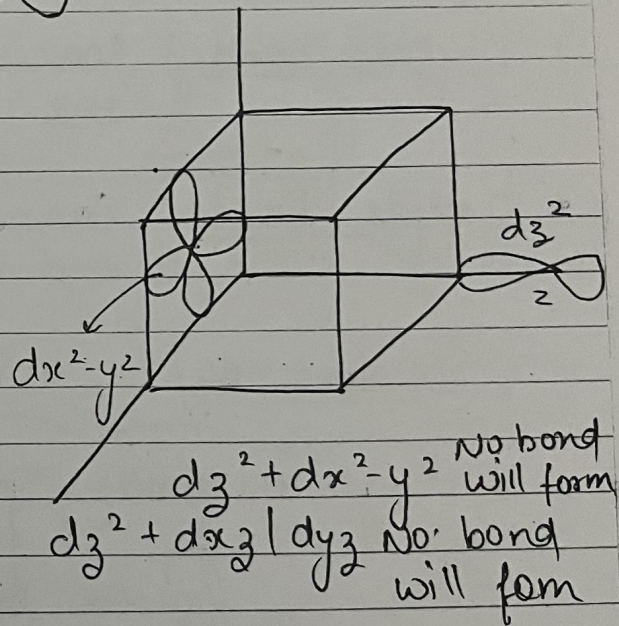 dz²
z
dx²-y²
dz² + dx²-y² No bond will form
dz² + dxz | dyz No. bond
will fom